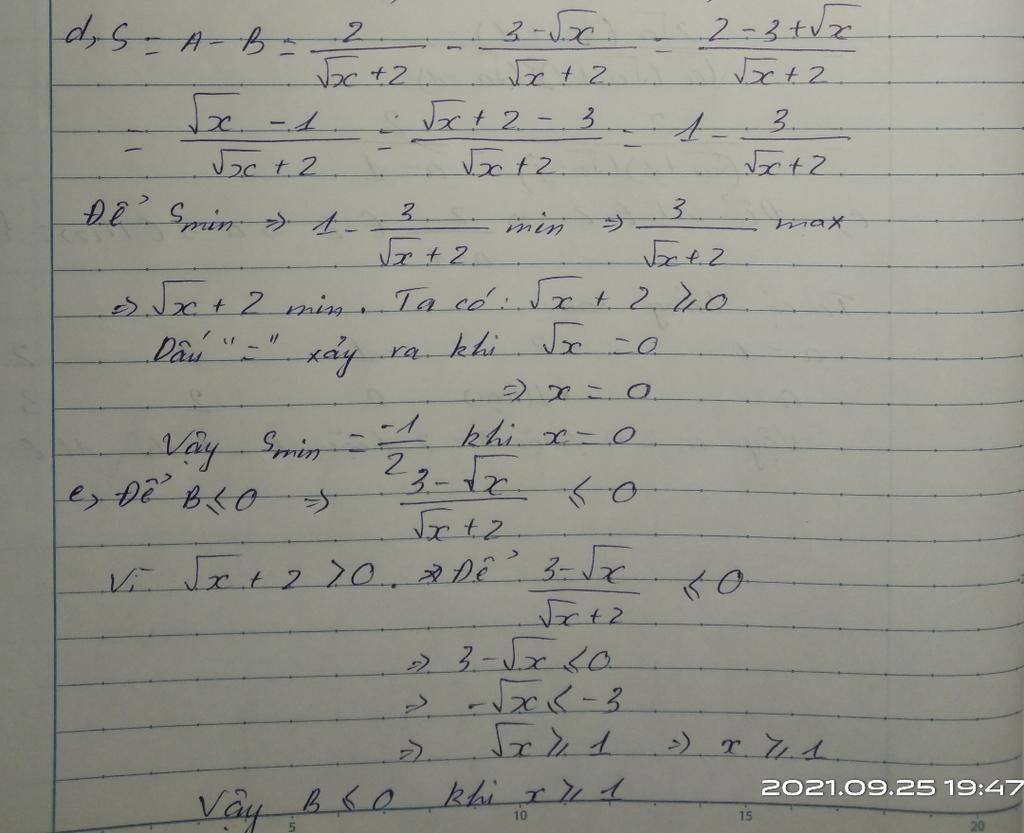 d, S = A - B = 2/(√x + 2) - (3 - √x)/(√x + 2) = (2 - 3 + √x)/(√x + 2)
= (√x - 1)/(√x + 2) = (√x + 2 - 3)/(√x + 2) = 1 - 3/(√x + 2)
Để Smin ⇒ 1 - 3/(√x + 2) min ⇒ 3/(√x + 2) max
⇒ √x + 2 min. Ta có: √x + 2 ⩾ 0
Dấu "=" xảy ra khi √x = 0
⇒ x = 0
Vậy Smin = -1/2 khi x = 0
e, Để B ⩽ 0 ⇒ (3 - √x)/(√x + 2) ⩽ 0
Vì √x + 2 > 0. Để (3 - √x)/(√x + 2) ⩽ 0
⇒ 3 - √x ⩽ 0
⇒ -√x ⩽ -3
⇒ √x ⩾ 1 ⇒ x ⩾ 1
Vậy B ⩽ 0 khi x ⩾ 1
2021.09.25 19:47
5 10 15 20